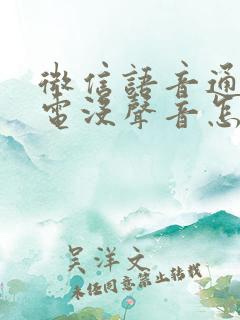 微信語音通
電沒聲音怎
吴洋文
未经同意禁止转载